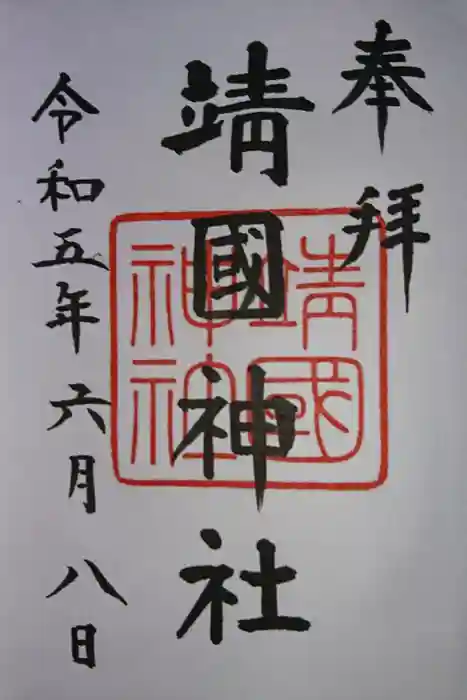 奉拝
靖國神社
靖國
神社
令和五年六月八日